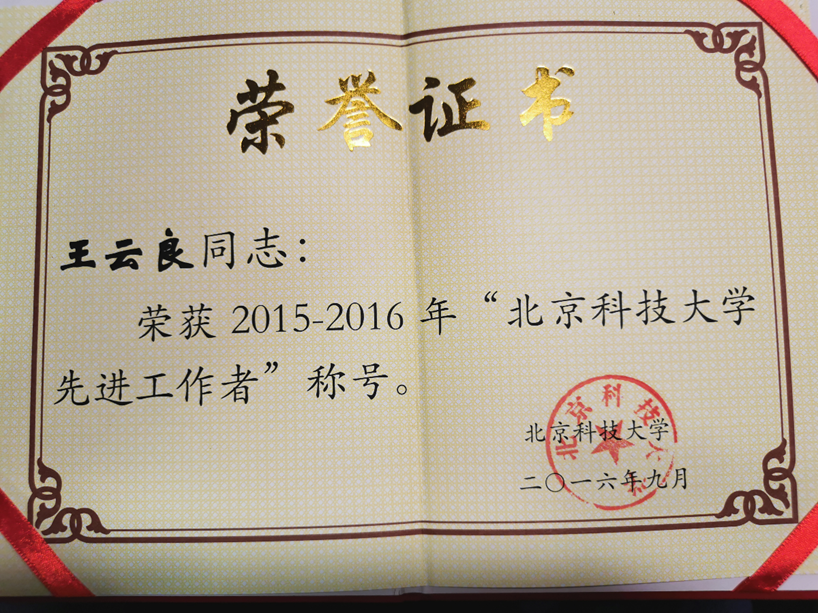 荣誉证书
王云良同志：
荣获 2015-2016 年“北京科技大学
先进工作者”称号。
北京科技大学
二〇一六年九月
北京科技大学